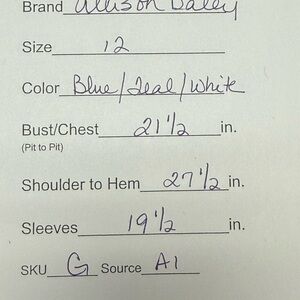 Brand Allison Daley
Size 12
Color Blue/Teal/White
Bust/Chest 21 1/2 in.
(Pit to Pit)
Shoulder to Hem 27 1/2 in.
Sleeves 19 1/2 in.
SKU G Source A1